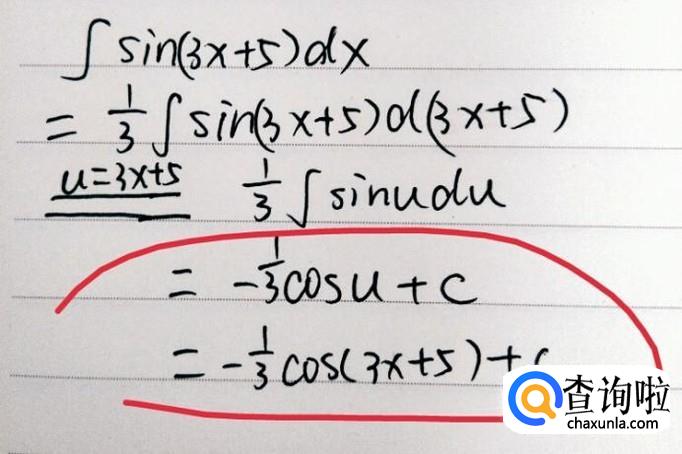 ∫ sin(3x+5)dx
= 1/3 ∫ sin(3x+5)d(3x+5)
u=3x+5 1/3 ∫ sinudu
= -1/3 cosu + c
= -1/3 cos(3x+5)+
查询啦
chaxunla.com